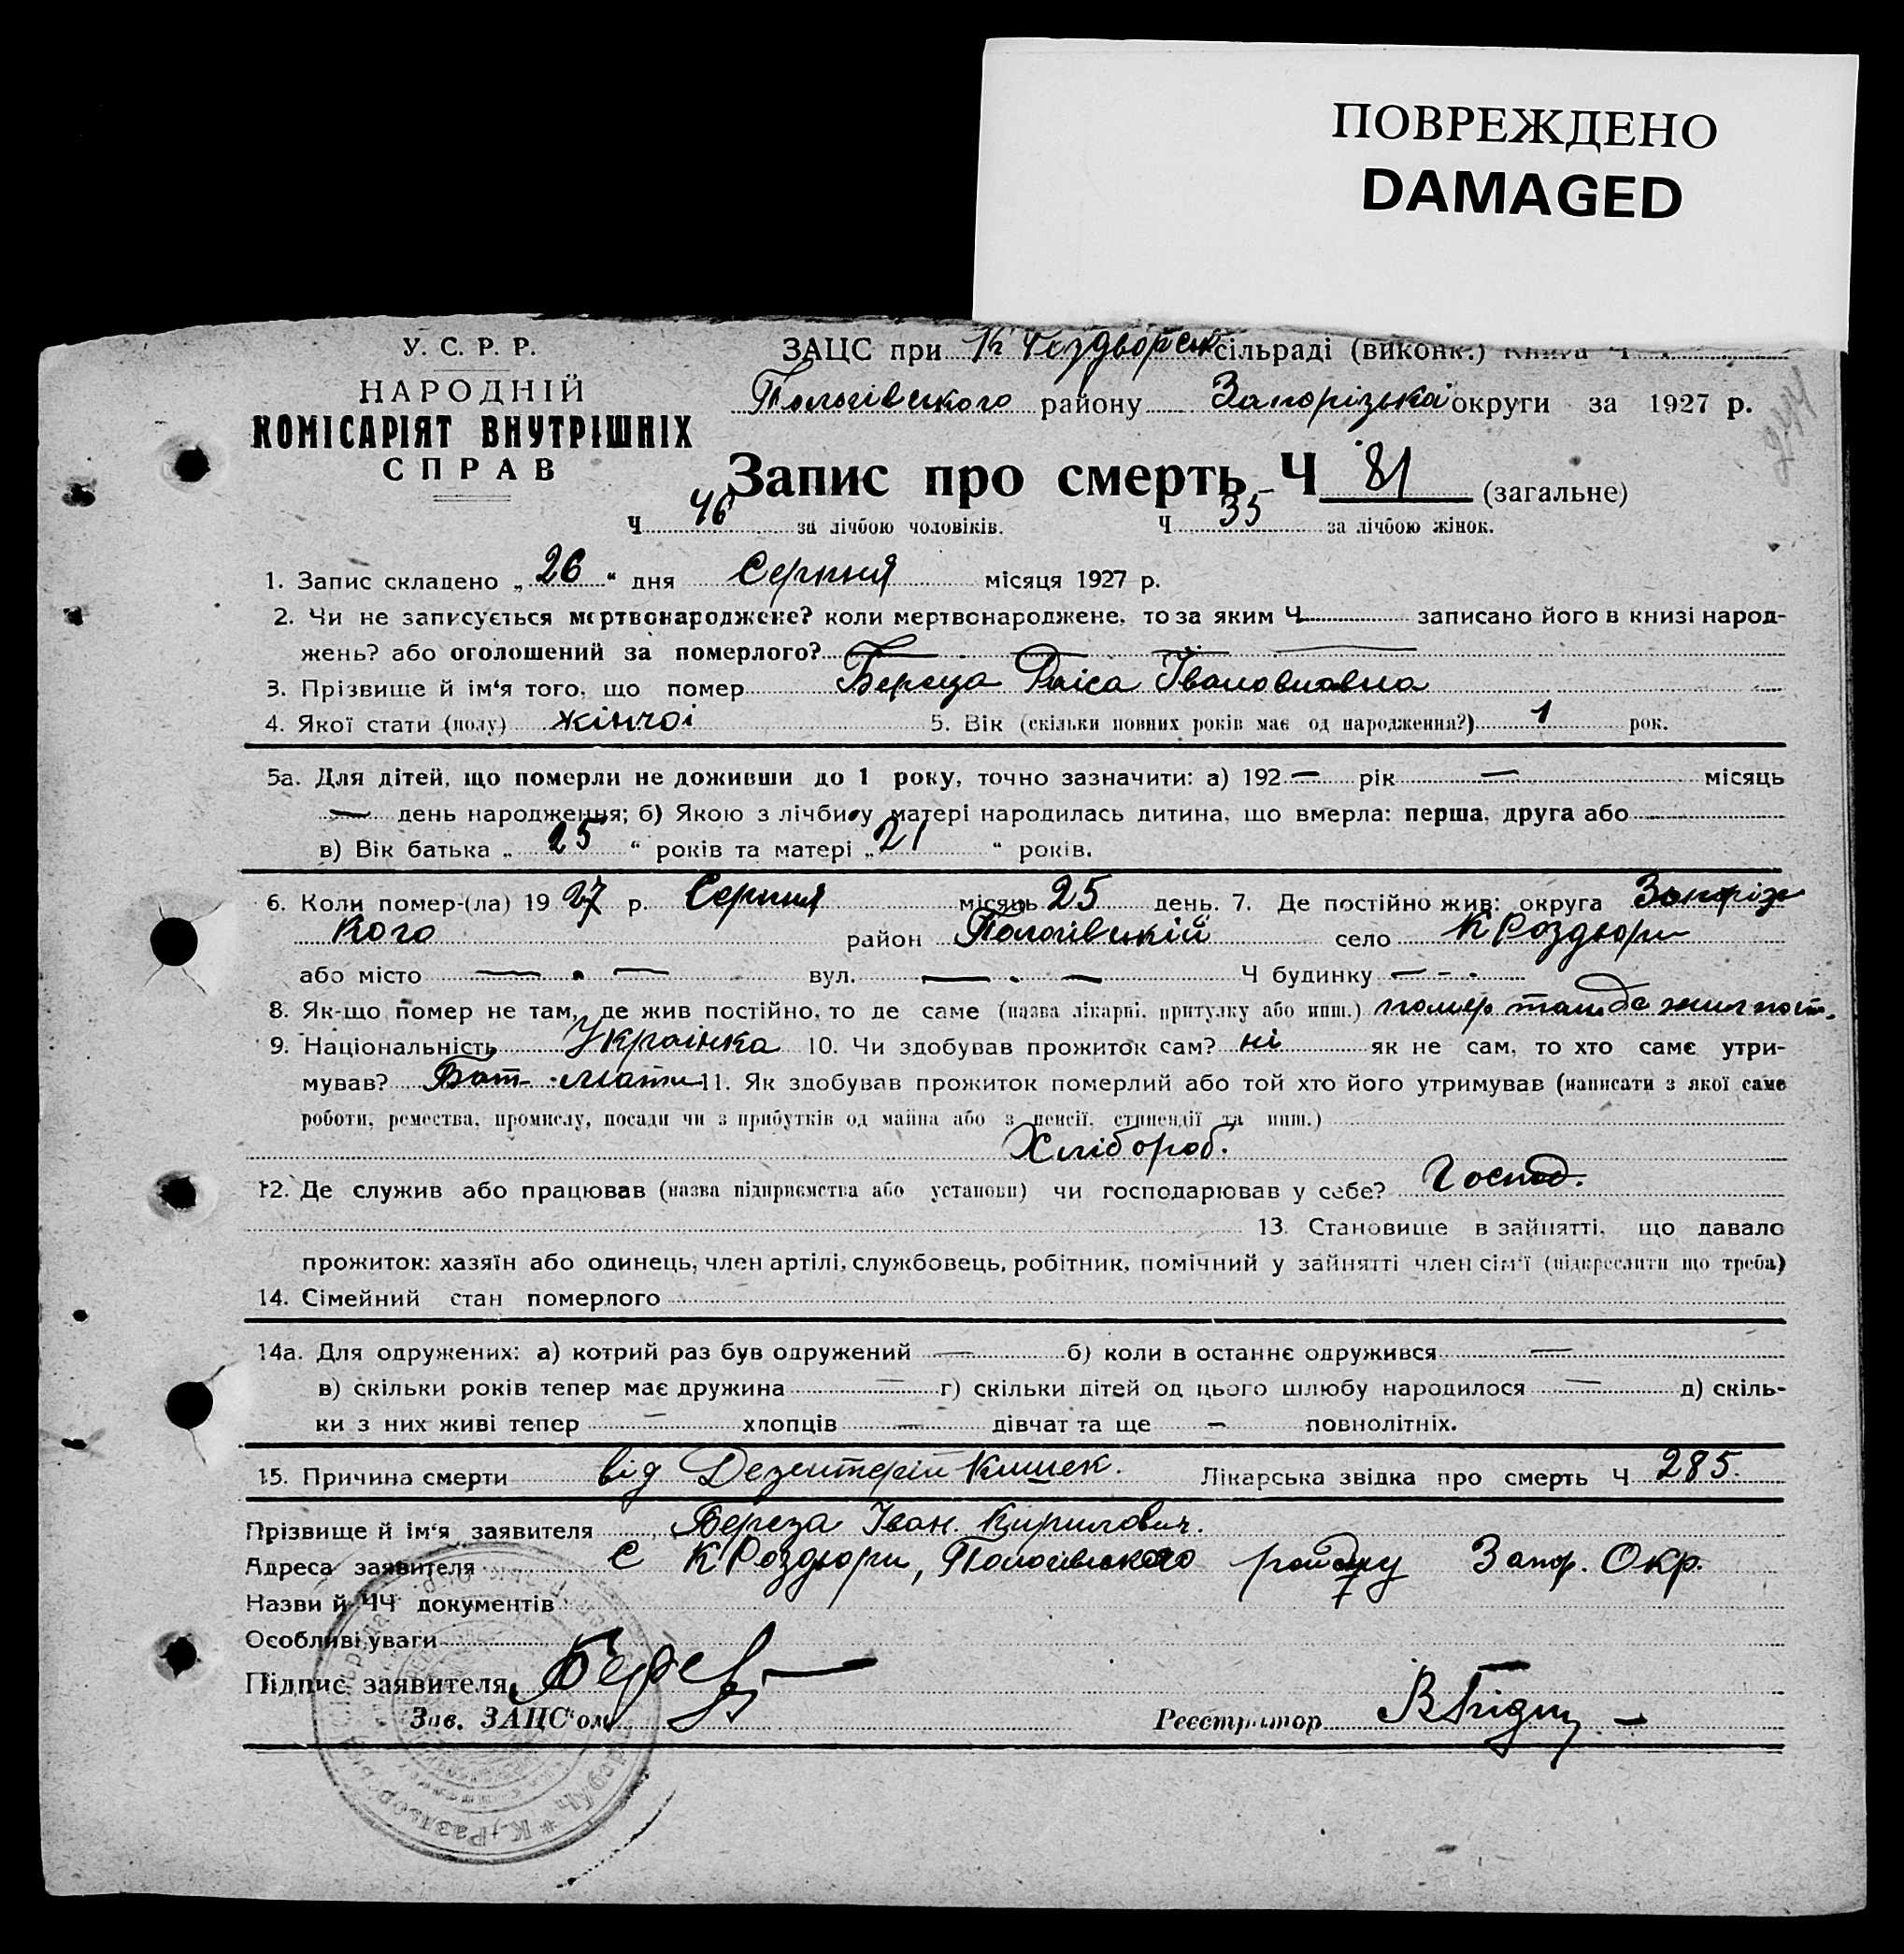 ПОВРЕЖДЕНО
DAMAGED
У. С. Р. Р.
НАРОДНІЙ
КОМІСАРІЯТ ВНУТРІШНІХ
СПРАВ
ЗАЦС при сільраді (виконк.) Книга Ч
Пологівського району Запорізької округи за 1927 р.
Запис про смерть Ч 81 (загальне)
Ч 46 за лічбою чоловіків. Ч 35 за лічбою жінок.
1. Запис складено „ 26 “ дня Серпня місяця 1927 р.
2. Чи не записується мертвонароджене? коли мертвонароджене, то за яким Ч записано його в книзі народ-
жень? або оголошений за померлого?
3. Прізвище й ім‘я того, що помер Береза Раіса Івановна
4. Якої стати (полу) жіночоі 5. Вік (скільки повних років має од народження?) 1 рок.
5а. Для дітей, що померли не доживши до 1 року, точно зазначити: а) 192 — рік — місяць
— день народження; б) Якою з лічби у матері народилась дитина, що вмерла: перша, друга або
в) Вік батька „ 25 “ років та матері „ 21 “ років.
6. Коли помер-(ла) 19 27 р. Серпня місяць 25 день. 7. Де постійно жив: округа Запоріз
кого район Пологівський село К Роздори
або місто — . — вул. — . — Ч будинку — - .
8. Як-що помер не там, де жив постійно, то де саме (назва лікарні, притулку або инш.) помер там де жил пост.
9. Національність Украінка 10. Чи здобував прожиток сам? ні як не сам, то хто саме утри-
мував? Бат - мати 11. Як здобував прожиток померлий або той хто його утримував (написати з якої саме
роботи, ремества, промислу, посади чи з прибутків од майна або з пенсії, стипендії та инш.)
Хлібороб.
12. Де служив або працював (назва підприємства або установи) чи господарював у себе? Господ.
13. Становище в зайнятті, що давало
прожиток: хазяїн або одинець, член артілі, службовець, робітник, помічний у зайнятті член сім‘ї (підкреслити що треба)
14. Сімейний стан померлого
14а. Для одружених: а) котрий раз був одружений — б) коли в останнє одружився —
в) скільки років тепер має дружина — г) скільки дітей од цього шлюбу народилося — д) скіль-
ки з них живі тепер — хлопців — дівчат та ще — повнолітніх.
15. Причина смерти від Дезентеріи Кишек. Лікарська звідка про смерть Ч 285.
Прізвище й ім‘я заявителя Береза Іван Кирилович.
Адреса заявителя С К Роздори, Пологівського району Запор. Окр.
Назви й ЧЧ документів
Особливі уваги
Підпис заявителя
Зав. ЗАЦС‘ом Реєстратор